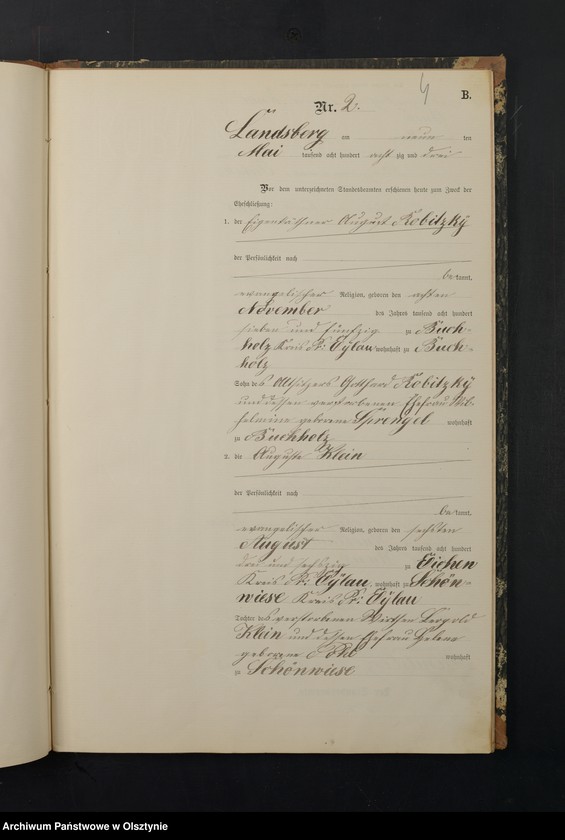 4
B.
Nr. 2.
Landsberg am neun ten
Mai tausend acht hundert acht zig und drei
Vor dem unterzeichneten Standesbeamten erschienen heute zum Zweck der
Eheschließung:
1. der Eigenkäthner August Kobitzky
der Persönlichkeit nach
be kannt,
evangelischer Religion, geboren den achten
November des Jahres tausend acht hundert
sieben und fünfzig zu Buch-
holz Kreis Pr: Eylau, wohnhaft zu Buch-
holz
Sohn des Altsitzers Gotthard Kobitzky
und dessen verstorbenen Ehefrau Wil-
helmine geborene Sprengel wohnhaft
zu Buchholz
2. die Auguste Klein
der Persönlichkeit nach
be kannt,
evangelischer Religion, geboren den sechsten
August des Jahres tausend acht hundert
drei und sechszig zu Eichen
Kreis Pr: Eylau, wohnhaft zu Schön-
wiese Kreis Pr: Eylau
Tochter des verstorbenen Wirthen Leopold
Klein und dessen Ehefrau Helene
geborene wohnhaft
zu Schönwiese
Archiwum Państwowe w Olsztynie